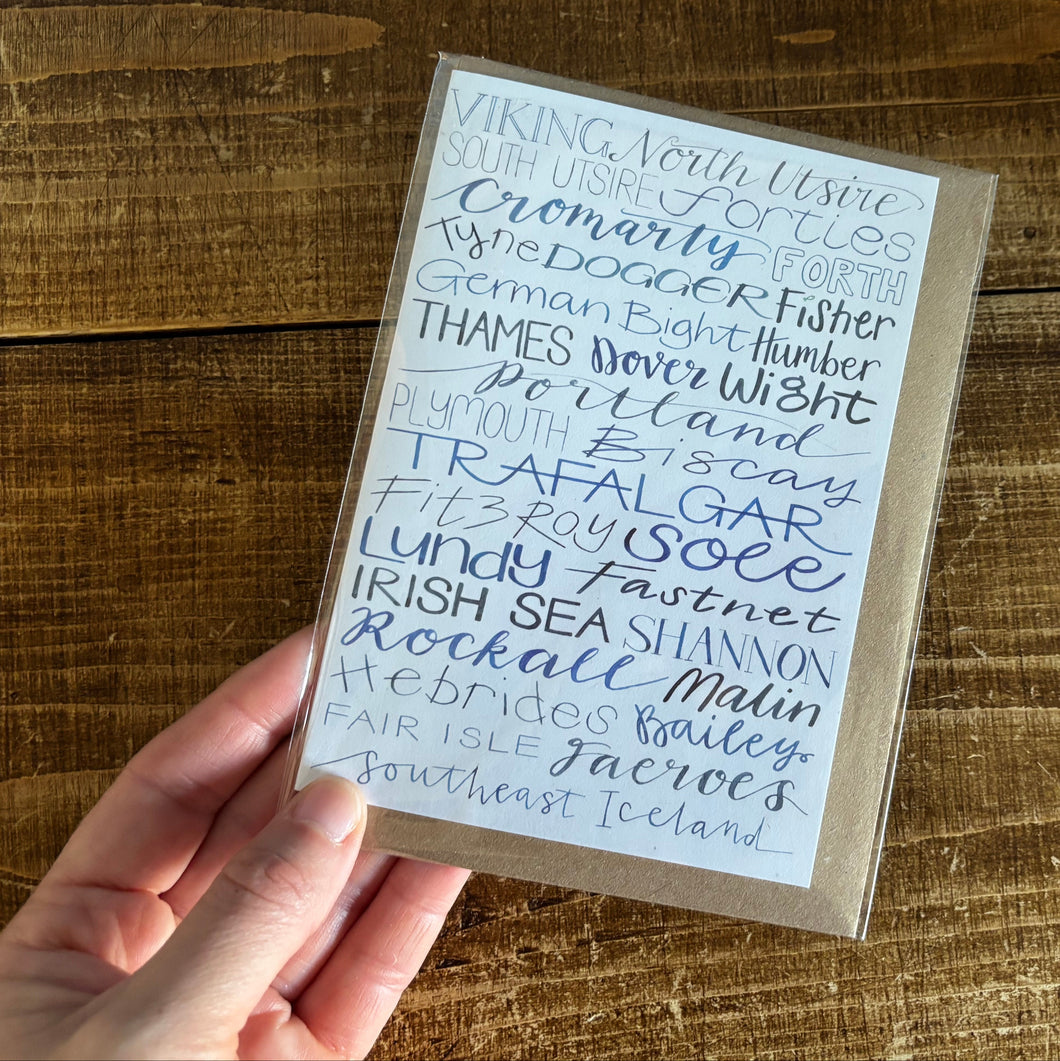 VIKING North Utsire
SOUTH UTSIRE Forties
Cromarty FORTH
Tyne DOGGER Fisher
German Bight Humber
THAMES Dover Wight
Portland
PLYMOUTH Biscay
TRAFALGAR
FitzRoy Sole
Lundy Fastnet
IRISH SEA SHANNON
Rockall Malin
Hebrides Bailey
FAIR ISLE Faeroes
Southeast Iceland